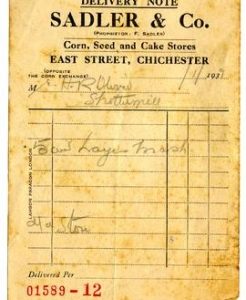 DELIVERY NOTE
SADLER & Co.
(PROPRIETOR: F. SADLER)
Corn, Seed and Cake Stores
EAST STREET, CHICHESTER
(OPPOSITE
THE CORN EXCHANGE)
193
M
Shottermill
Layers Mash
LAMSON PARAGON LONDON
Delivered Per
01589-12